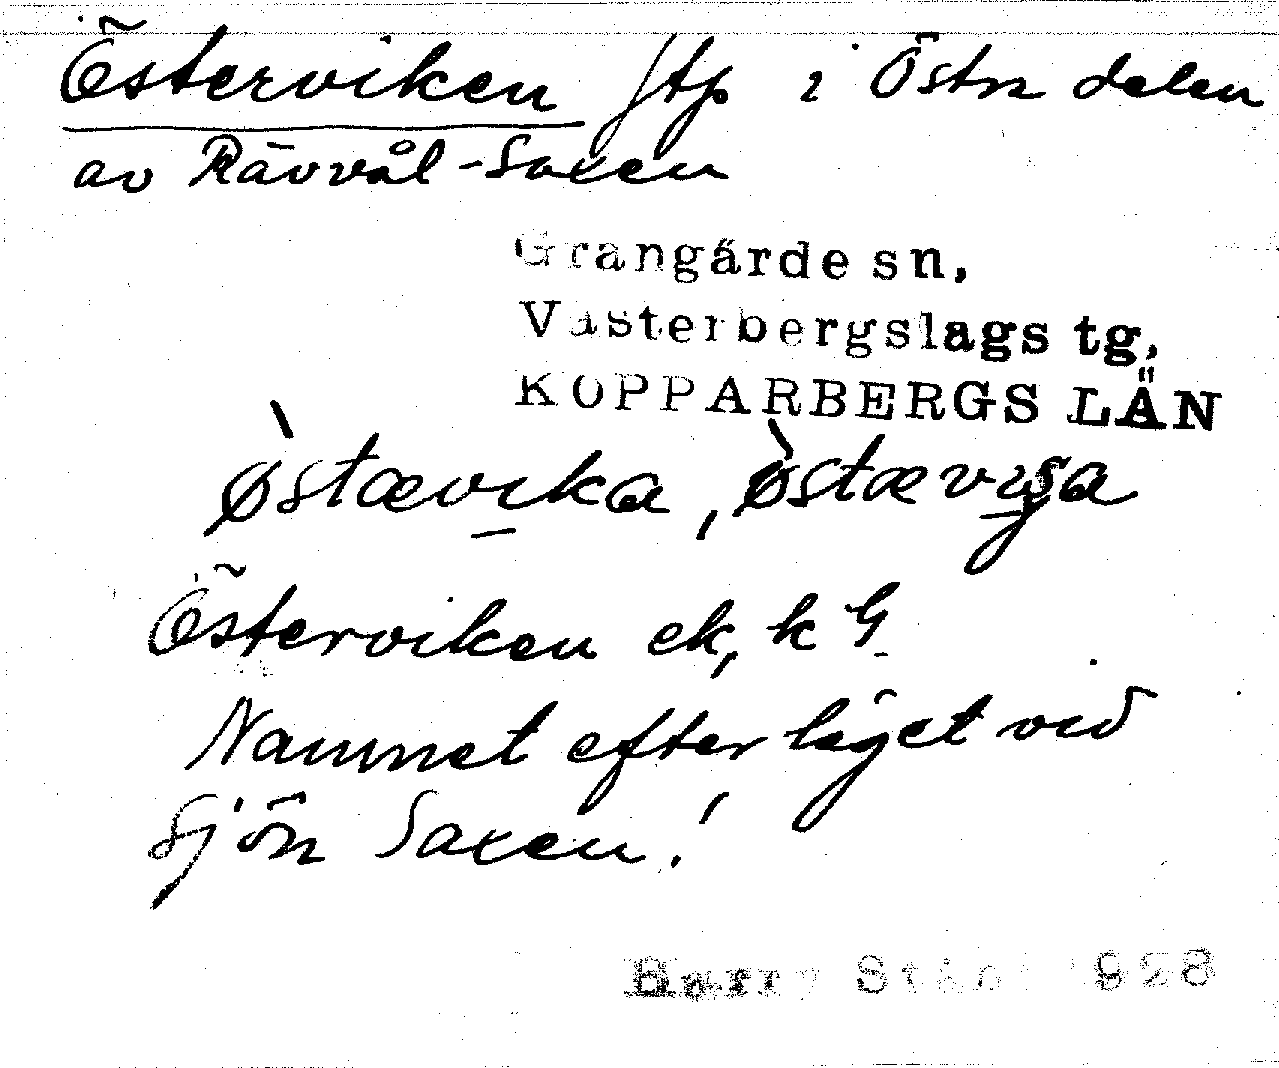 Österviken ftp i Östra delen
av Rävvål-Saxen
Grangärde sn,
Västerbergslags tg,
KOPPARBERGS LÄN
`østævika, `østæviga
Österviken ek, k G
Namnet efter läget vid
Sjön Saxen!
Harry Ståhl 1928